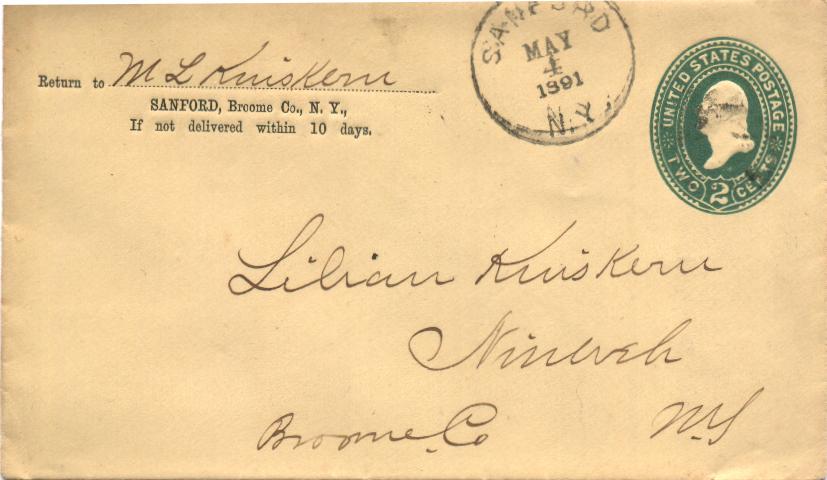 Return to M L Kniskern
SANFORD, Broome Co., N. Y.,
If not delivered within 10 days.
SANFORD
MAY
4
1891
N.Y.
UNITED STATES POSTAGE
TWO 2 CENTS
Lilian Kniskern
Nineveh
Broome Co N.Y